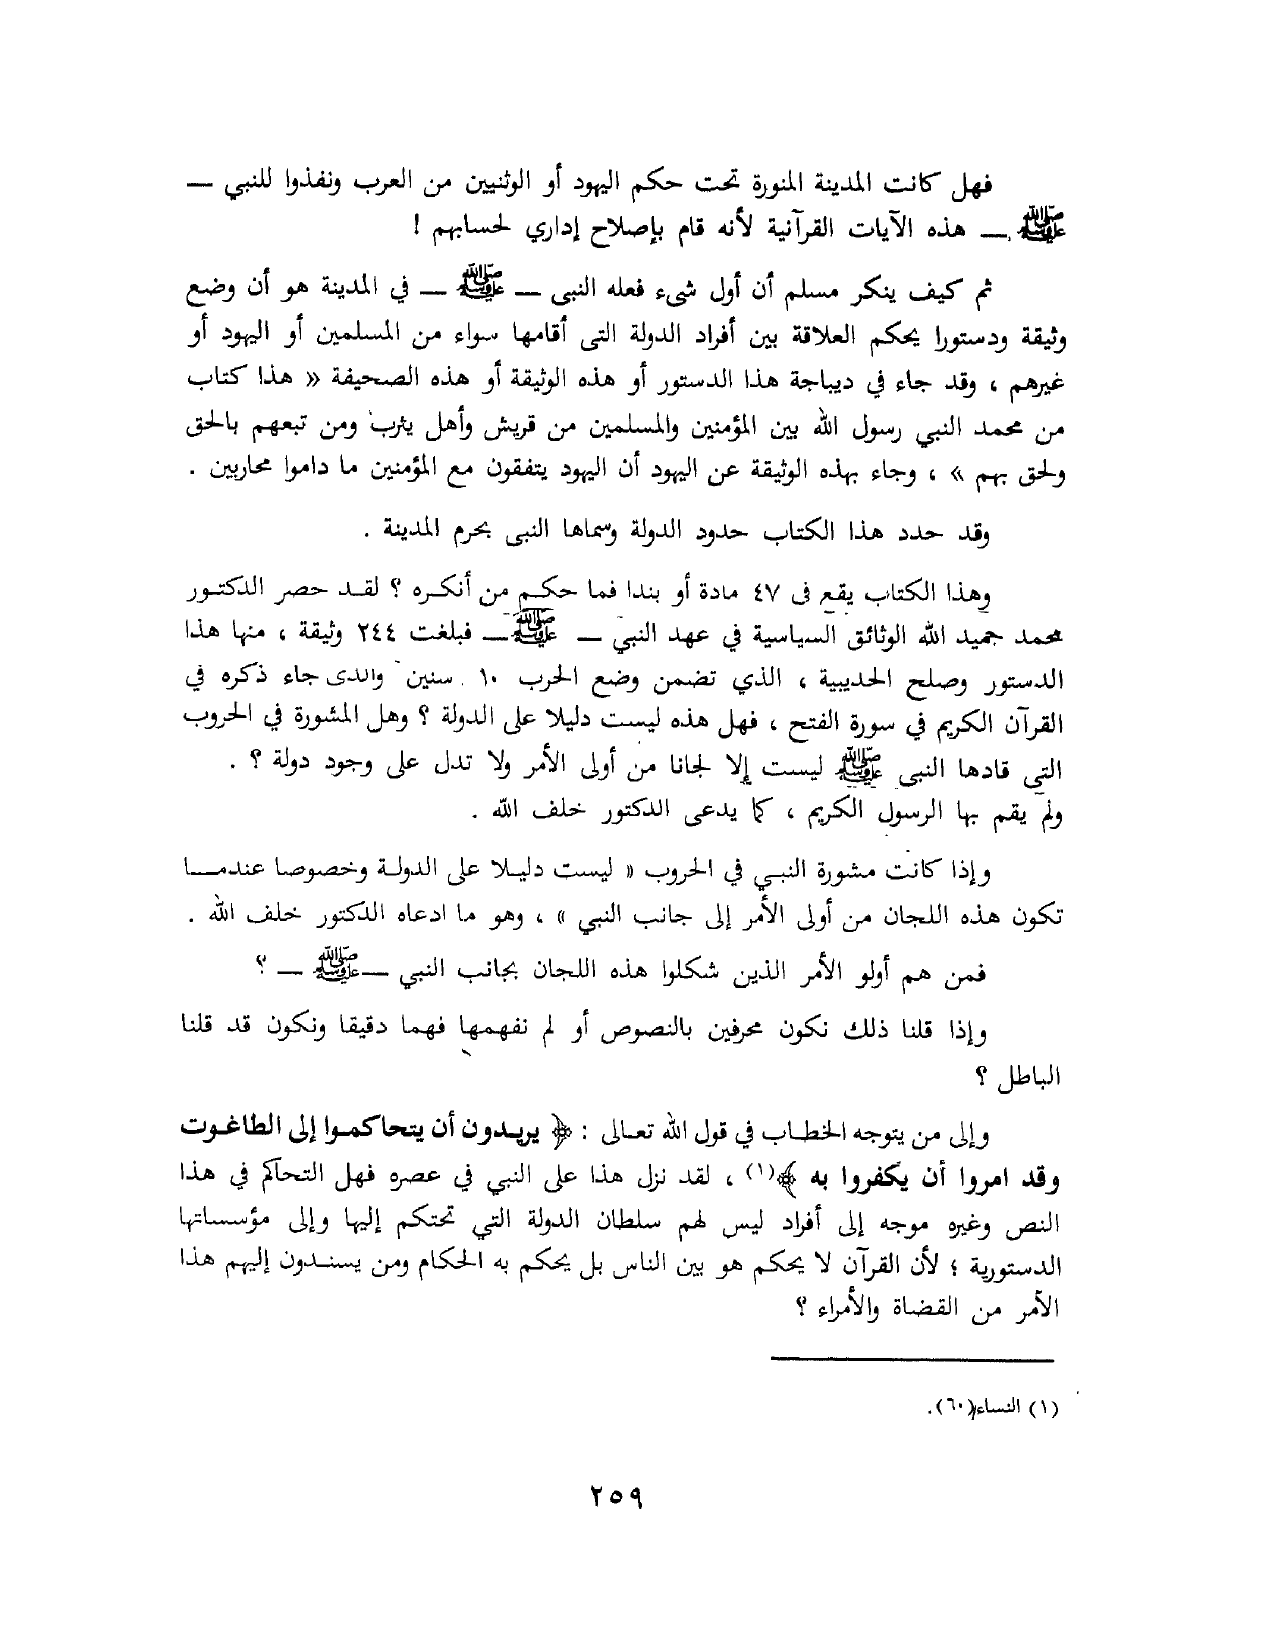 فهل كانت المدينة المنورة تحت حكم اليهود أو الوثنيين من العرب ونفذوا للنبي —
ﷺ — هذه الآيات القرآنية لأنه قام بإصلاح إداري لحسابهم !
ثم كيف ينكر مسلم أن أول شىء فعله النبى — ﷺ — في المدينة هو أن وضع
وثيقة ودستورا يحكم العلاقة بين أفراد الدولة التى أقامها سواء من المسلمين أو اليهود أو
غيرهم ، وقد جاء في ديباجة هذا الدستور أو هذه الوثيقة أو هذه الصحيفة « هذا كتاب
من محمد النبي رسول الله بين المؤمنين والمسلمين من قريش وأهل يثرب ومن تبعهم بالحق
ولحق بهم » ، وجاء بهذه الوثيقة عن اليهود أن اليهود يتفقون مع المؤمنين ما داموا محاربين .
وقد حدد هذا الكتاب حدود الدولة وسماها النبى بحرم المدينة .
وهذا الكتاب يقع فى ٤٧ مادة أو بندا فما حكم من أنكره ؟ لقد حصر الدكتور
محمد حميد الله الوثائق السياسية في عهد النبي — ﷺ — فبلغت ٢٤٤ وثيقة ، منها هذا
الدستور وصلح الحديبية ، الذي تضمن وضع الحرب ١٠ سنين والذى جاء ذكره في
القرآن الكريم في سورة الفتح ، فهل هذه ليست دليلا على الدولة ؟ وهل المشورة في الحروب
التى قادها النبى ﷺ ليست إلا لجانا من أولى الأمر ولا تدل على وجود دولة ؟ .
ولم يقم بها الرسول الكريم ، كما يدعى الدكتور خلف الله .
وإذا كانت مشورة النبي في الحروب « ليست دليلا على الدولة وخصوصا عندما
تكون هذه اللجان من أولى الأمر إلى جانب النبي » ، وهو ما ادعاه الدكتور خلف الله .
فمن هم أولو الأمر الذين شكلوا هذه اللجان بجانب النبي — ﷺ — ؟
وإذا قلنا ذلك نكون محرفين بالنصوص أو لم نفهمها فهما دقيقا ونكون قد قلنا
الباطل ؟
وإلى من يتوجه الخطاب في قول الله تعالى : ﴿ يريدون أن يتحاكموا إلى الطاغوت
وقد امروا أن يكفروا به ﴾(١) ، لقد نزل هذا على النبي في عصره فهل التحاكم في هذا
النص وغيره موجه إلى أفراد ليس لهم سلطان الدولة التي تحتكم إليها وإلى مؤسساتها
الدستورية ؛ لأن القرآن لا يحكم هو بين الناس بل يحكم به الحكام ومن يسندون إليهم هذا
الأمر من القضاة والأمراء ؟
(١) النساء(٦٠).
٢٥٩